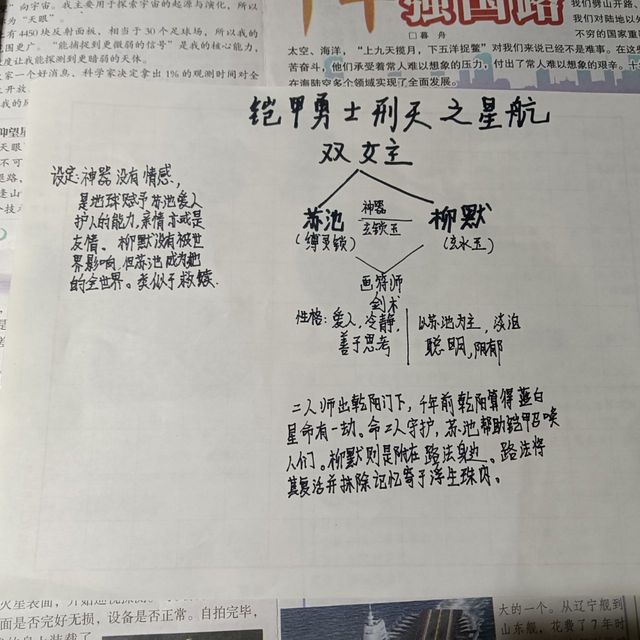 向宇宙。我主要用于探索宇宙的起源与演化，所以
为“天眼”。
有4450块反射面板，相当于30个足球场，所以我的
围更广。“能捕捉到更微弱的信号”是我的核心能力，
度让我能探测到更暗弱的天体。
家一个好消息，科学家决定拿出1%的观测时间对全
强国路
□暮舟
太空、海洋，“上九天揽月，下五洋捉鳖”对我们来说已经不是难事。在这
苦奋斗，他们承受着常人难以想象的压力，付出了常人难以想象的艰辛。
在海陆空多个领域实现了全面发展。
们劈山开路、
我们对陆地以
不穷的国家重
铠甲勇士刑天之星航
双女主
设定：神器没有情感，
是地球赋予苏池爱人
护人的能力，亲情亦或是
友情。柳默没有被世
界影响，但苏池成为她
的全世界。类似于救赎
苏池
(缚灵锁)
神器
玄锁玉
柳默
(玄水玉)
画符师
剑术
性格：爱人，冷静，
善于思考
以苏池为主，淡泊
聪明，阴郁
二人师出乾阳门下，千年前乾阳算得蓝白
星命有一劫。命二人守护，苏池帮助铠甲召唤
人们。柳默则是附在路法身边。路法将
其复活并抹除记忆寄于浮生珠内。
面是否完好无损，设备是否正常。自拍完毕，
大的一个。从辽宁舰到
山东舰，花费了7年时